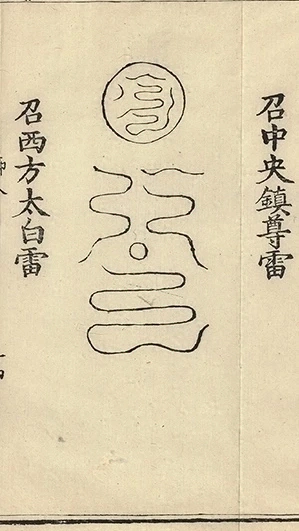 召中央鎮尊雷
召西方太白雷